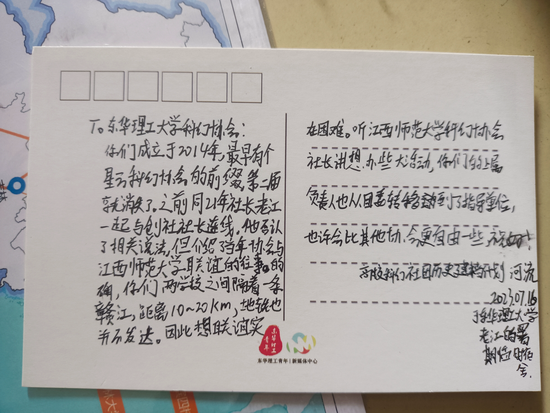 To.东华理工大学科幻协会：
你们成立于2014年，最早有个
星云科幻协会的前缀，第二届
就消失了。之前同21年社长老江
一起与创社社长连线，他否认
了相关说法，但
了当年协会与
江西师范大学联谊的往事。的
确，你们两学校之间隔着一条
赣江，距离10～20km，地铁也
并不发达。因此想联谊实
在困难。听江西师范大学科幻协会
社长讲想办些大活动，你们的上届
负责人也从团委转移到了指导单位，
也许会比其他协会更自由一些，
高校科幻社团历史建档计划 河流
2023.07.16
于东华理工大学
老江的署
期待
会
东华理工青年 | 新媒体中心